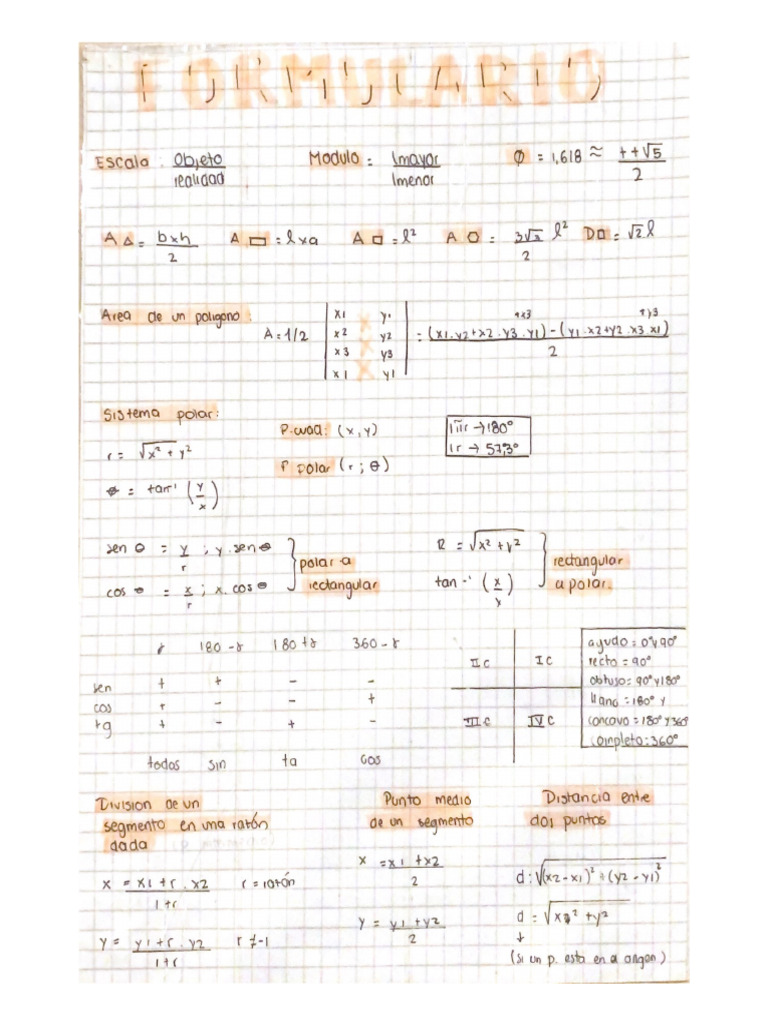 FORMULARIO
Escala: Objeto/realidad   Modulo: lmayor/lmenor   Ø = 1,618 ≈ ++√5/2
A△ = bxh/2   A▭ = lxa   A□ = l²   A⬡ = 3√3/2 l²   D□ = √2 l
Area de un poligono: A=1/2 |x1 y1 x2 y2 x3 y3 x1 y1| = (x1.y2+x2.y3.y1)-(y1.x2+y2.x3.x1)/2
Sistema polar:
P.cuad: (x,y)
r = √x²+y²
P polar (r;θ)
1πr→180°
1r→57,3°
θ = tan⁻¹(y/x)
sen θ = y/r ; y.senθ
cos θ = x/r ; x.cosθ
polar a
rectangular
R = √x²+y²
tan⁻¹(x/y)
rectangular
a polar.
γ 180-γ 180+γ 360-γ
sen + + - -
cos + - - +
tg + - + -
todos sin ta cos
II C I C
III C IV C
ayudo=0°y90°
recto=90°
obtuso=90°y180°
llano=180°y
concavo=180°y360°
completo=360°
Division de un
segmento en una ratón
dada
x = x1+r.x2/1+r   r=ratón
y = y1+r.y2/1+r   r≠-1
Punto medio
de un segmento
x = x1+x2/2
y = y1+y2/2
Distancia entre
dos puntos
d: √(x2-x1)²+(y2-y1)²
d = √x²+y²
↓
(si un p. esta en el origen)